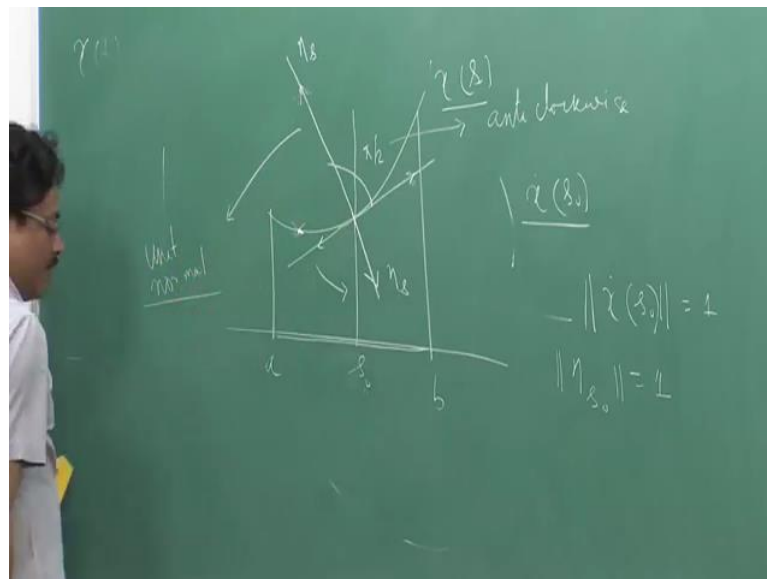 γ(s)
η_s
γ̇(s)
anticlockwise
π/2
γ̇(s₀)
unit
normal
η_s
‖γ̇(s₀)‖ = 1
‖η_{s₀}‖ = 1
a
s₀
b